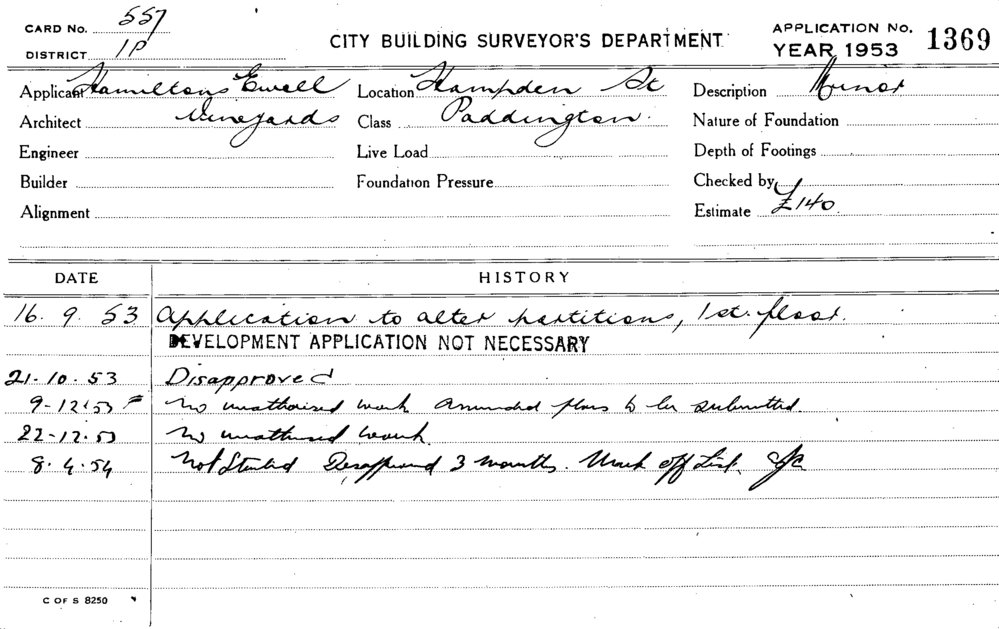 CARD No. 557
DISTRICT 1P
CITY BUILDING SURVEYOR'S DEPARTMENT
APPLICATION No. 1369
YEAR 1953
Applicant Hamiltons Ewell Location Hampden St Description Minor
Architect Vineyards Class Paddington. Nature of Foundation
Engineer Live Load Depth of Footings
Builder Foundation Pressure Checked by
Alignment Estimate £140.
DATE HISTORY
16. 9. 53 Application to alter partitions, 1st. floor.
DEVELOPMENT APPLICATION NOT NECESSARY
21.10.53 Disapproved
9-12.53 No unathorised work Amended plans to be submitted.
22-12.53 No unathorised work.
8.4.54 Not Started Disapproved 3 months. Mark off List.
C OF S 8250